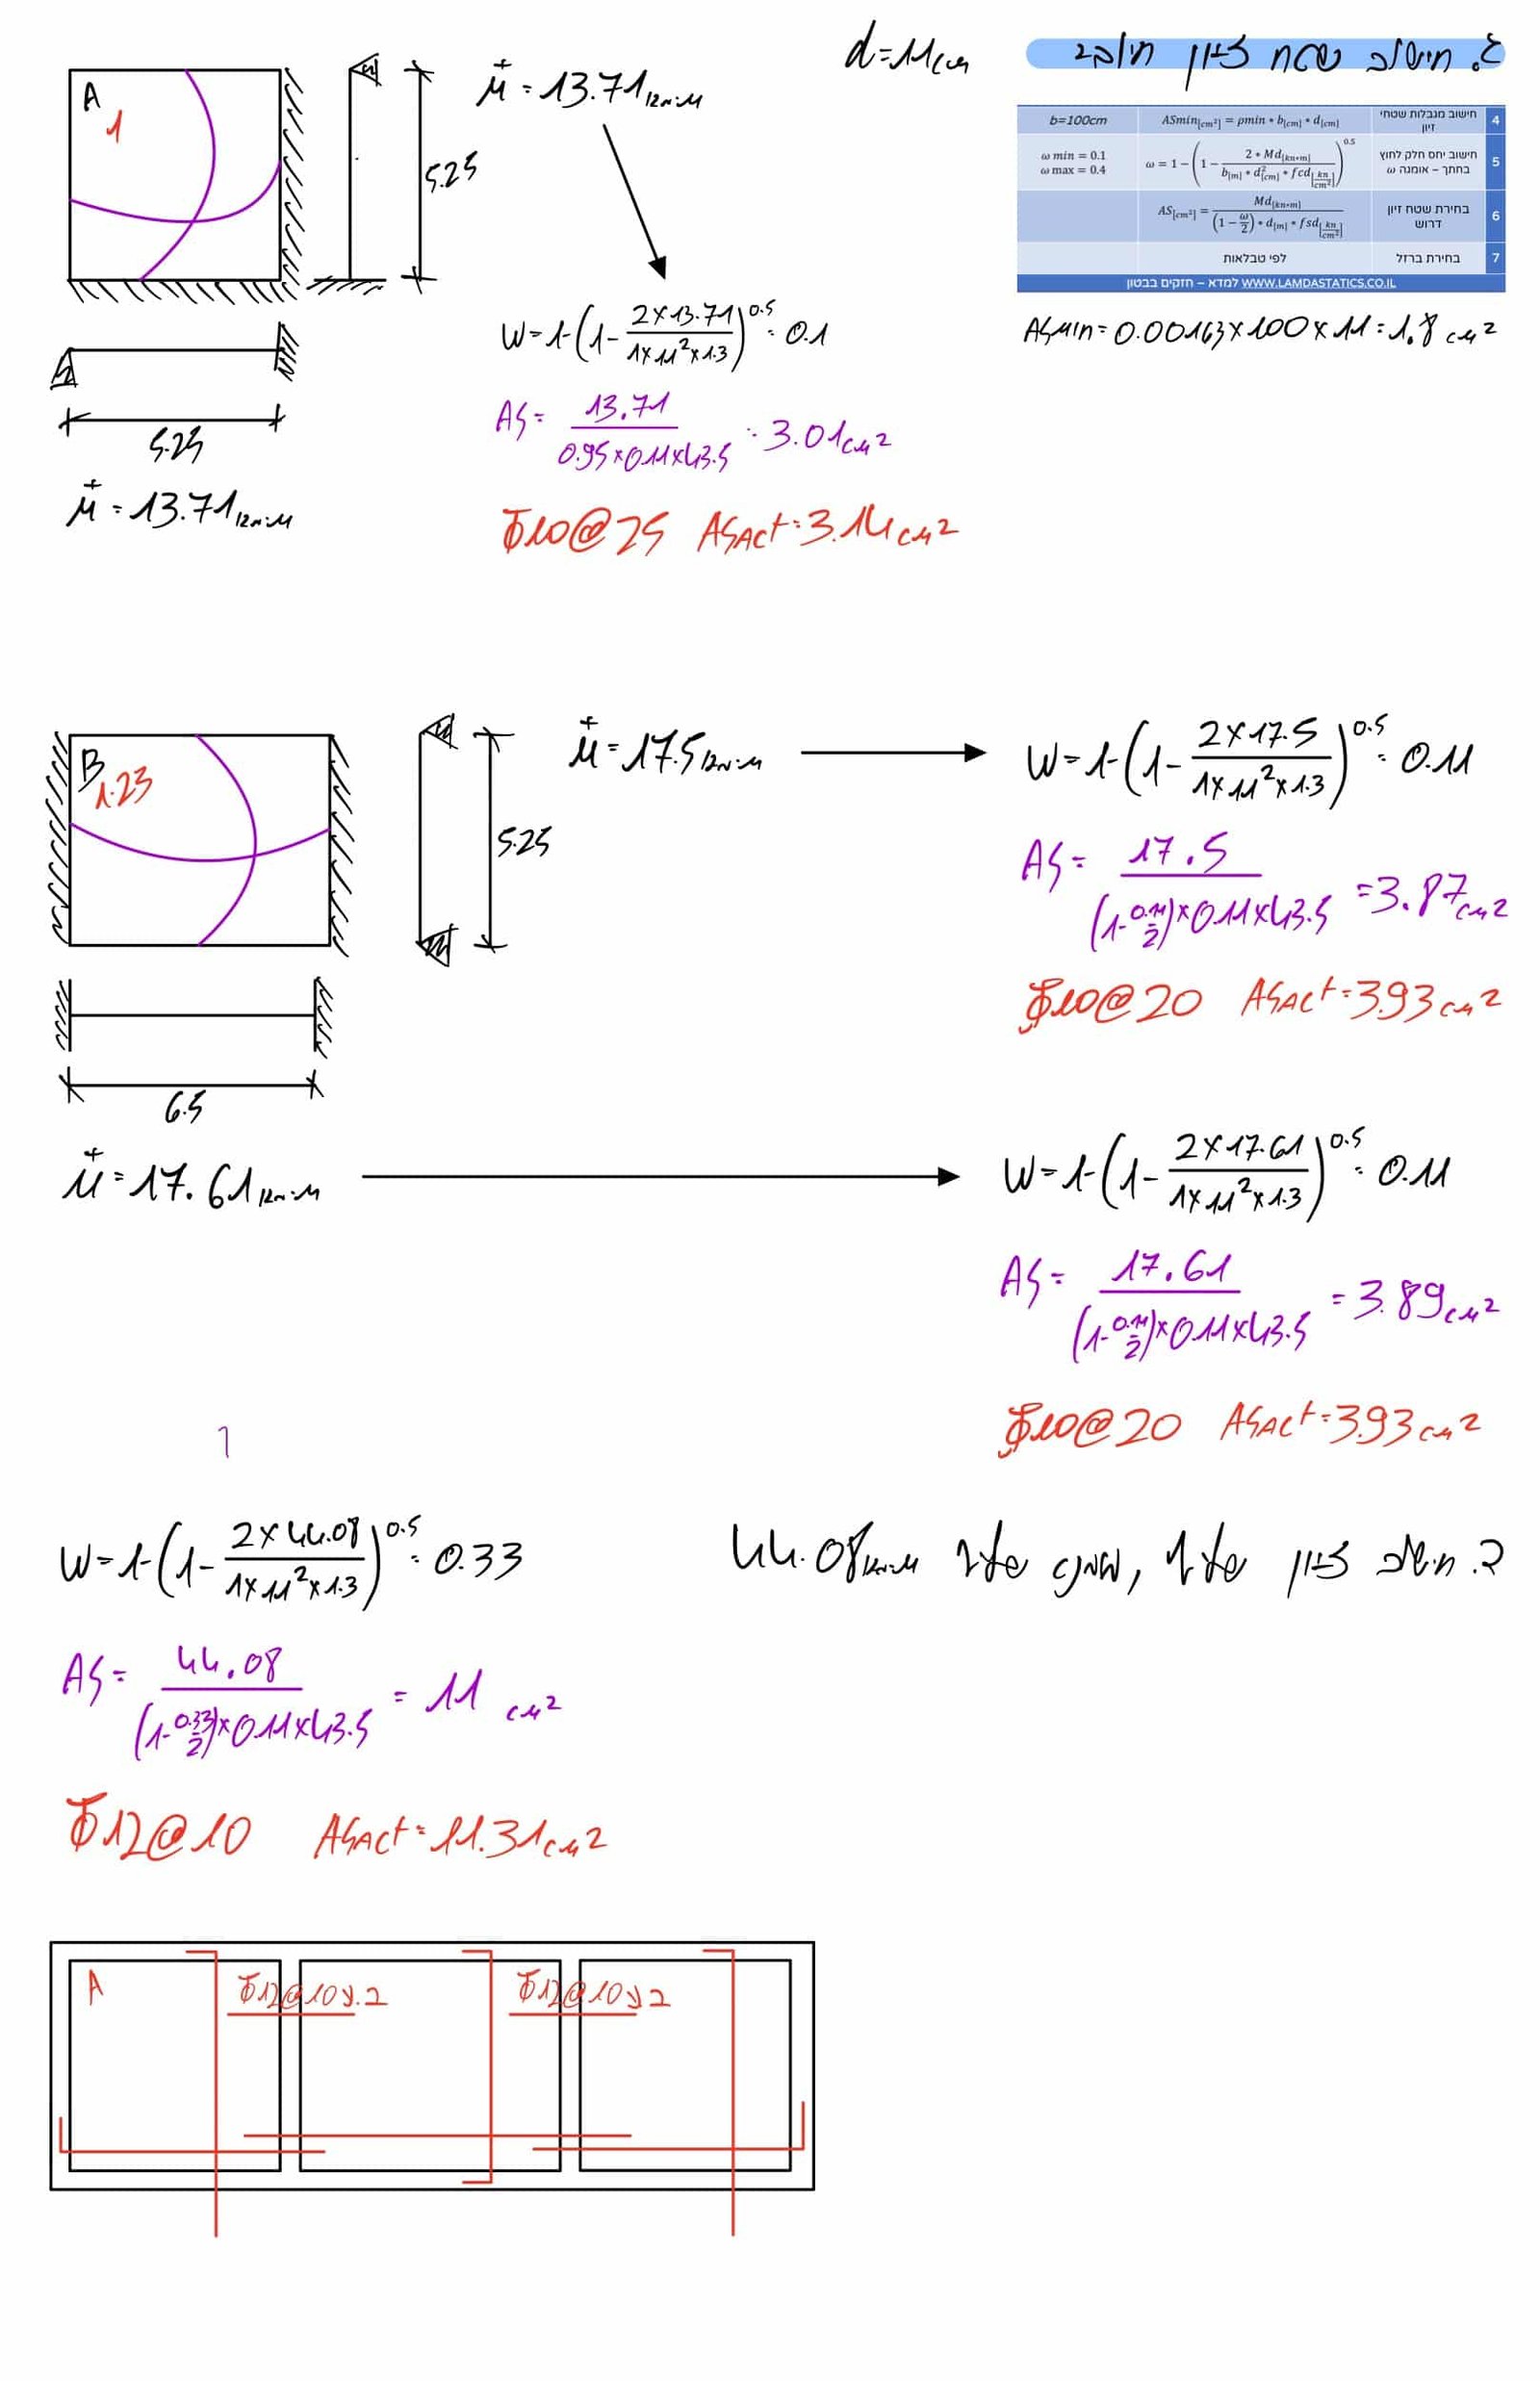 ג. חישוב שטח זיון חיובי
d=11cm
b=100cm ASmin[cm²] = ρmin * b[cm] * d[cm] חישוב מגבלות שטחי זיון 4
ω min = 0.1 ω max = 0.4 ω = 1 − (1 − 2 * Md[kn*m] / b[m] * d²[cm] * fcd[kn/cm²])^0.5 חישוב יחס חלק לחוץ בחתך – אומגה ω 5
AS[cm²] = Md[kn*m] / (1 − ω/2) * d[m] * fsd[kn/cm²] בחירת שטח זיון דרוש 6
לפי טבלאות בחירת ברזל 7
למדא – חזקים בבטון WWW.LAMDASTATICS.CO.IL
ASMIN=0.00163×100×11=1.8 cm²
A
1
5.25
M+=13.71kN·M
5.25
M+=13.71kN·M
W=1-(1-2×13.71/1×11²×1.3)^0.5=0.1
AS=13.71/0.95×0.11×43.5=3.01cm²
Φ10@25 ASACT=3.14cm²
B
1.23
5.25
M+=17.5kN·M
W=1-(1-2×17.5/1×11²×1.3)^0.5=0.11
AS=17.5/(1-0.11/2)×0.11×43.5=3.87cm²
Φ10@20 ASACT=3.93cm²
6.5
M+=17.61kN·M
W=1-(1-2×17.61/1×11²×1.3)^0.5=0.11
AS=17.61/(1-0.11/2)×0.11×43.5=3.89cm²
Φ10@20 ASACT=3.93cm²
ד. חישוב זיון שלילי, מומנט שלילי 44.08kN·M
W=1-(1-2×44.08/1×11²×1.3)^0.5=0.33
AS=44.08/(1-0.33/2)×0.11×43.5=11 cm²
Φ12@10 ASACT=11.31cm²
A
Φ12@10 ע.2
Φ12@10 ע.2